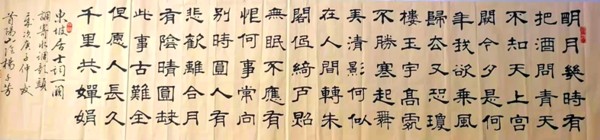 明月幾時有
把酒問青天
不知天上宮
闕今夕是何
年我欲乘風
歸去又恐瓊
樓玉宇高處
不勝寒起舞
弄清影何似
在人間轉朱
閣低綺戶照
無眠不應有
恨何事常向
別時圓人有
悲歡離合月
有陰晴圓缺
此事古難全
但願人長久
千里共嬋娟
東坡居士詞一闋
調寄水調歌頭
歲次庚子仲秋
首陽山人楊子芳